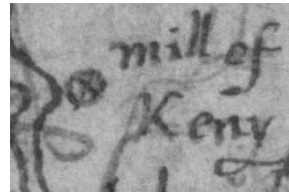 mill of
Keny